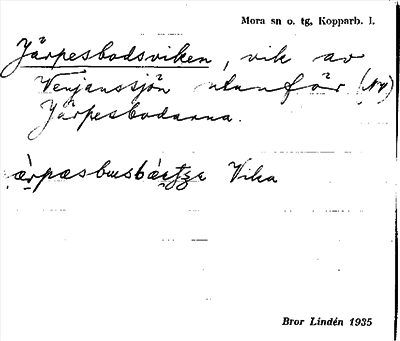 Mora sn o. tg, Kopparb. l.
Järpesbodsviken, vik av
Venjanssjön utanför (NV)
Järpesbodarna.
Vika
Bror Lindén 1935